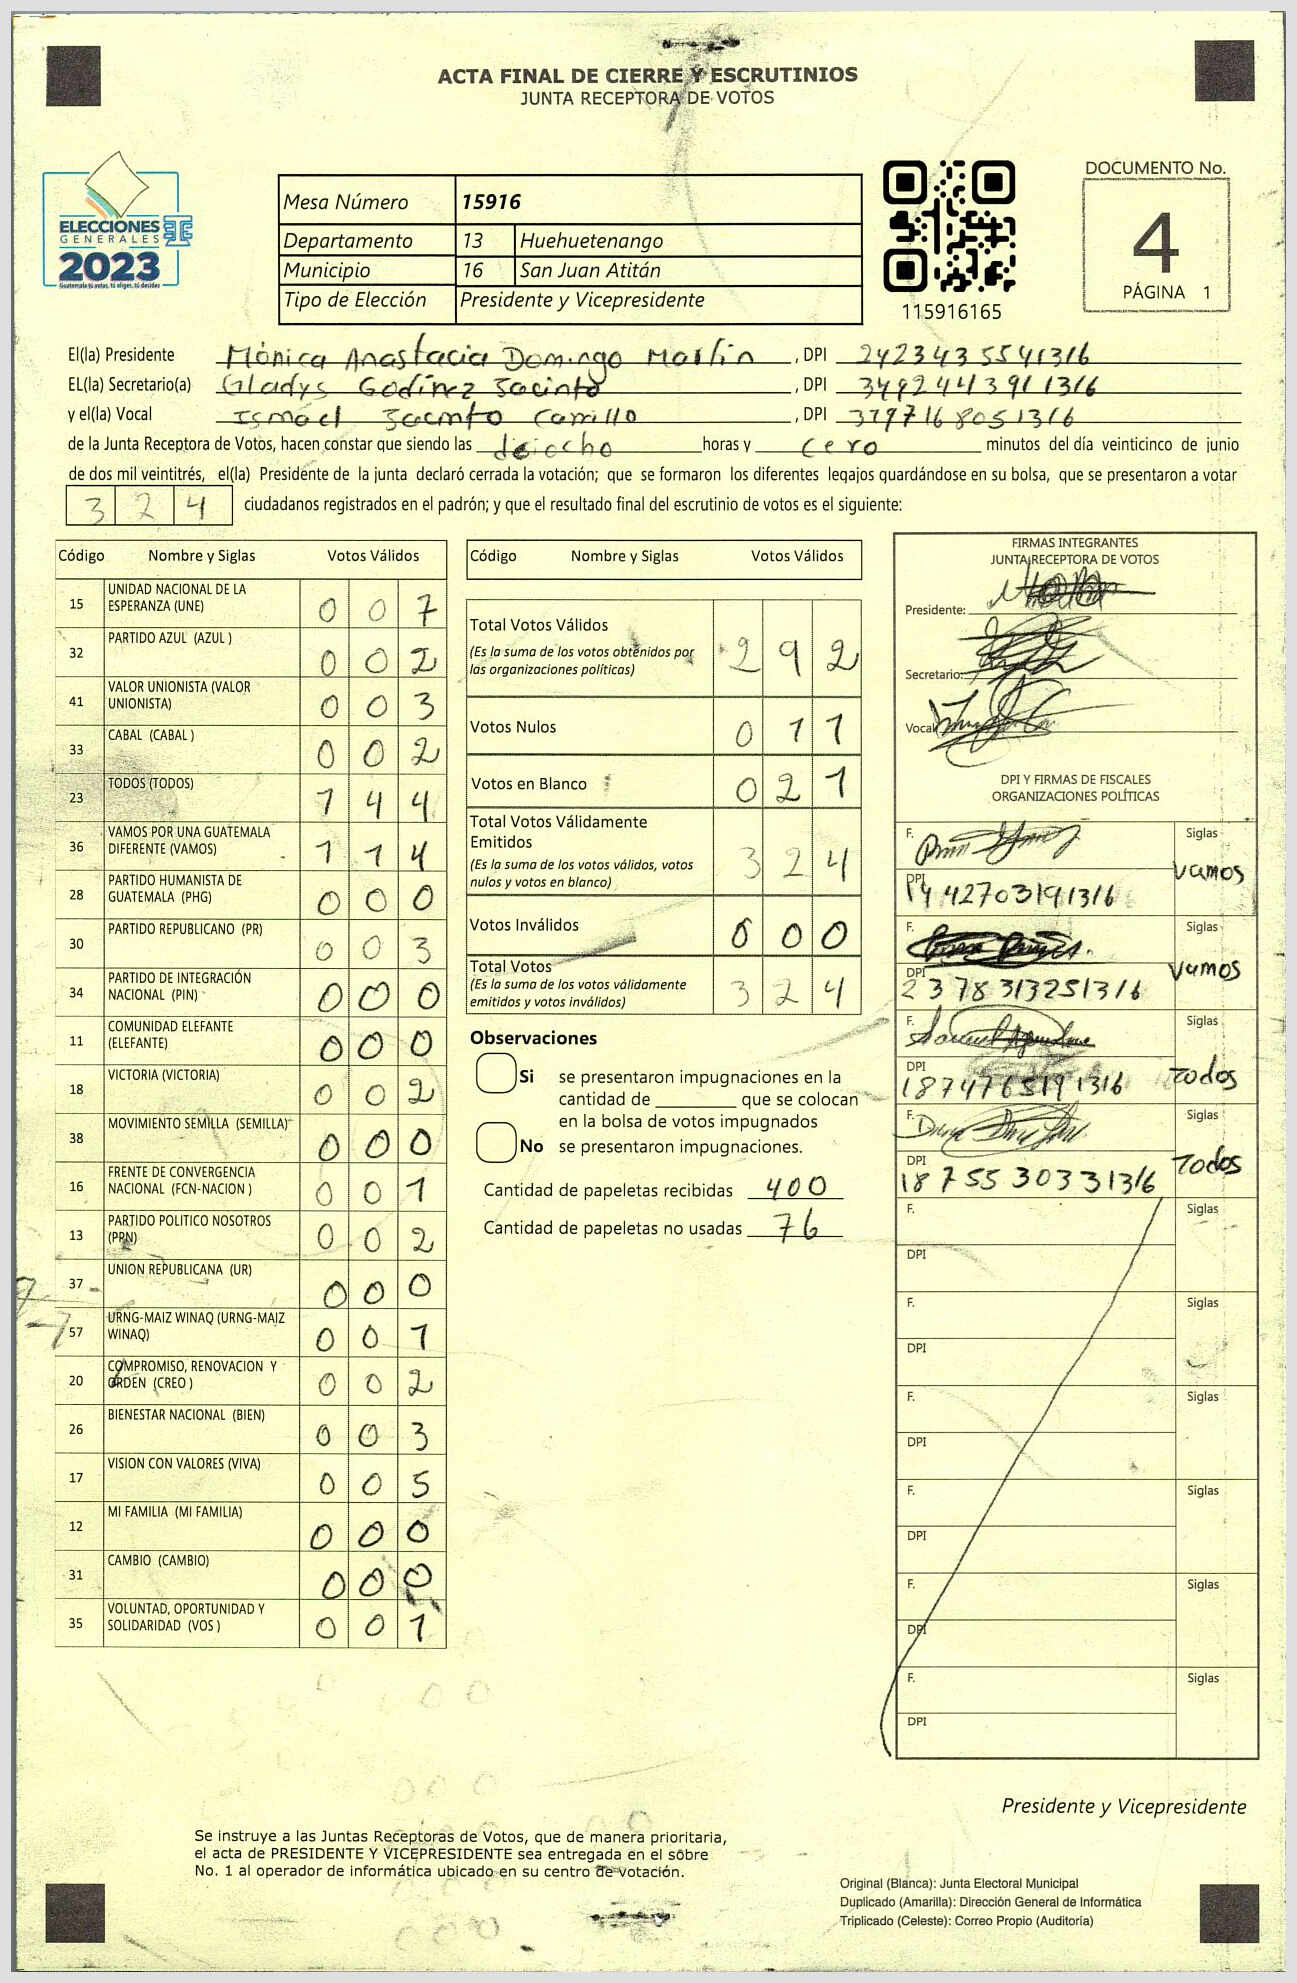 ACTA FINAL DE CIERRE Y ESCRUTINIOS
JUNTA RECEPTORA DE VOTOS
ELECCIONES
GENERALES
2023
Guatemala tú votas, tú eliges, tú decides
Mesa Número 15916
Departamento 13 Huehuetenango
Municipio 16 San Juan Atitán
Tipo de Elección Presidente y Vicepresidente
115916165
DOCUMENTO No.
4
PÁGINA 1
El(la) Presidente Mónica Anastacia Domingo Martín , DPI 2423435541316
EL(la) Secretario(a) Gladys Godínez Jacinto , DPI 3492441391 1316
y el(la) Vocal Ismael Jacinto Carrillo , DPI 3797168051316
de la Junta Receptora de Votos, hacen constar que siendo las deiocho horas y cero minutos del día veinticinco de junio
de dos mil veintitrés, el(la) Presidente de la junta declaró cerrada la votación; que se formaron los diferentes legajos quardándose en su bolsa, que se presentaron a votar
324 ciudadanos registrados en el padrón; y que el resultado final del escrutinio de votos es el siguiente:
Código Nombre y Siglas Votos Válidos
15 UNIDAD NACIONAL DE LA ESPERANZA (UNE) 0 0 7
32 PARTIDO AZUL (AZUL ) 0 0 2
41 VALOR UNIONISTA (VALOR UNIONISTA) 0 0 3
33 CABAL (CABAL ) 0 0 2
23 TODOS (TODOS) 1 4 4
36 VAMOS POR UNA GUATEMALA DIFERENTE (VAMOS) 1 1 4
28 PARTIDO HUMANISTA DE GUATEMALA (PHG) 0 0 0
30 PARTIDO REPUBLICANO (PR) 0 0 3
34 PARTIDO DE INTEGRACIÓN NACIONAL (PIN) 0 0 0
11 COMUNIDAD ELEFANTE (ELEFANTE) 0 0 0
18 VICTORIA (VICTORIA) 0 0 2
38 MOVIMIENTO SEMILLA (SEMILLA) 0 0 0
16 FRENTE DE CONVERGENCIA NACIONAL (FCN-NACION ) 0 0 1
13 PARTIDO POLITICO NOSOTROS (PPN) 0 0 2
37 UNION REPUBLICANA (UR) 0 0 0
57 URNG-MAIZ WINAQ (URNG-MAIZ WINAQ) 0 0 1
20 COMPROMISO, RENOVACION Y ORDEN (CREO ) 0 0 2
26 BIENESTAR NACIONAL (BIEN) 0 0 3
17 VISION CON VALORES (VIVA) 0 0 5
12 MI FAMILIA (MI FAMILIA) 0 0 0
31 CAMBIO (CAMBIO) 0 0 0
35 VOLUNTAD, OPORTUNIDAD Y SOLIDARIDAD (VOS ) 0 0 1
Código Nombre y Siglas Votos Válidos
Total Votos Válidos 2 9 2
(Es la suma de los votos obtenidos por
las organizaciones políticas)
Votos Nulos 0 1 1
Votos en Blanco 0 2 1
Total Votos Válidamente
Emitidos 3 2 4
(Es la suma de los votos válidos, votos
nulos y votos en blanco)
Votos Inválidos 0 0 0
Total Votos 3 2 4
(Es la suma de los votos válidamente
emitidos y votos inválidos)
Observaciones
Si se presentaron impugnaciones en la
cantidad de ________ que se colocan
en la bolsa de votos impugnados
No se presentaron impugnaciones.
Cantidad de papeletas recibidas 400
Cantidad de papeletas no usadas 76
FIRMAS INTEGRANTES
JUNTA RECEPTORA DE VOTOS
Presidente:
Secretario:
Vocal
DPI Y FIRMAS DE FISCALES
ORGANIZACIONES POLÍTICAS
F. Siglas
vamos
DPI
1442703191316
F. Siglas
vamos
DPI
2378313251316
F. Siglas
Todos
DPI
1874765191316
F. Siglas
Todos
DPI
1875530331316
F. Siglas
DPI
F. Siglas
DPI
F. Siglas
DPI
F. Siglas
DPI
F. Siglas
DPI
F. Siglas
DPI
Presidente y Vicepresidente
Se instruye a las Juntas Receptoras de Votos, que de manera prioritaria,
el acta de PRESIDENTE Y VICEPRESIDENTE sea entregada en el sobre
No. 1 al operador de informática ubicado en su centro de votación.
Original (Blanca): Junta Electoral Municipal
Duplicado (Amarilla): Dirección General de Informática
Triplicado (Celeste): Correo Propio (Auditoría)